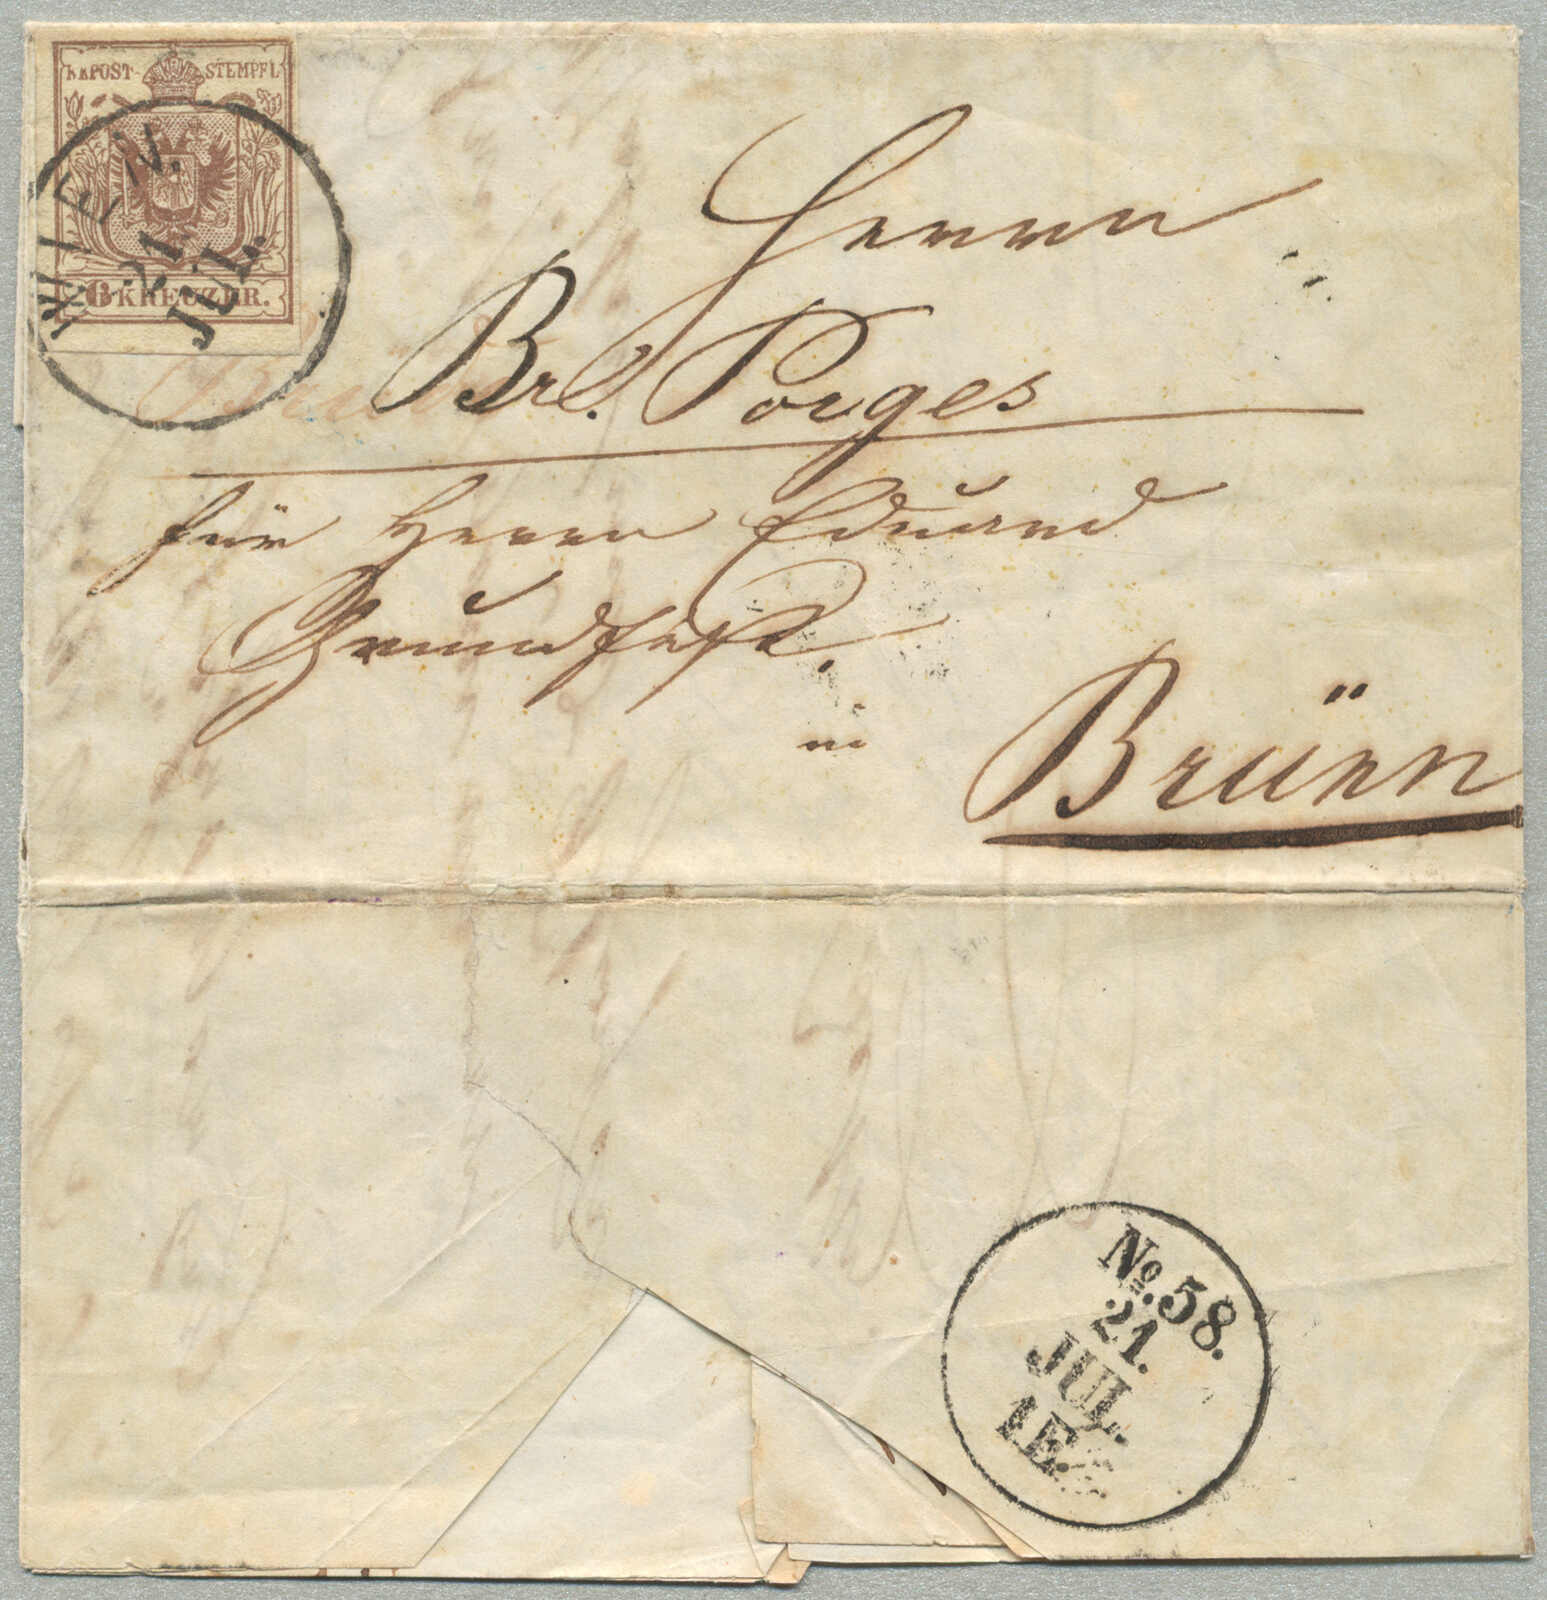 KKPOST-STEMPEL
6 KREUZER.
WIEN.
21.
JUL.
Herrn
Br. S. Porges
für Herrn Eduard
Grundfest.
in
Brünn
No. 58.
21.
JUL.
1E.